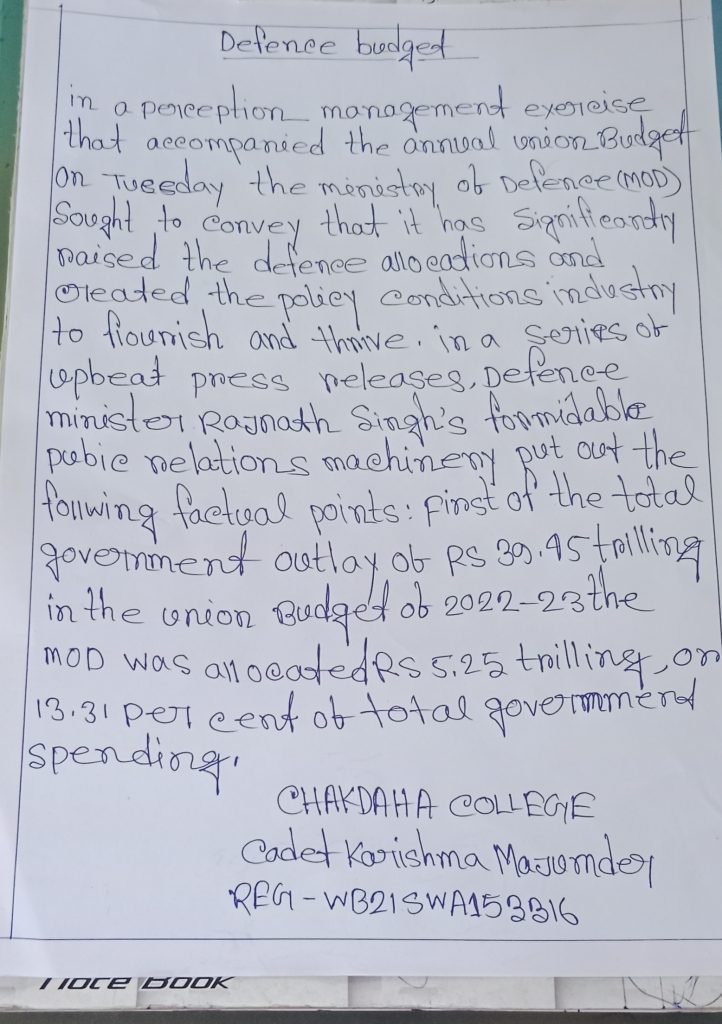 Defence budget
in a perception management exercise
that accompanied the annual union Budget
On Tuesday the ministry of Defence (MOD)
Sought to convey that it has Significantly
raised the defence allocations and
created the policy conditions industry
to flourish and thrive. in a series of
upbeat press releases, Defence
minister Rajnath Singh's formidable
pubic relations machinery put out the
follwing factual points: First of the total
government outlay of RS 39.45 trilling
in the union Budget of 2022-23 the
MOD was allocated RS 5.25 trilling, or
13.31 per cent of total government
spending.
CHAKDAHA COLLEGE
Cadet Karishma Majumder
REG - WB21SWA153316
NOTE BOOK